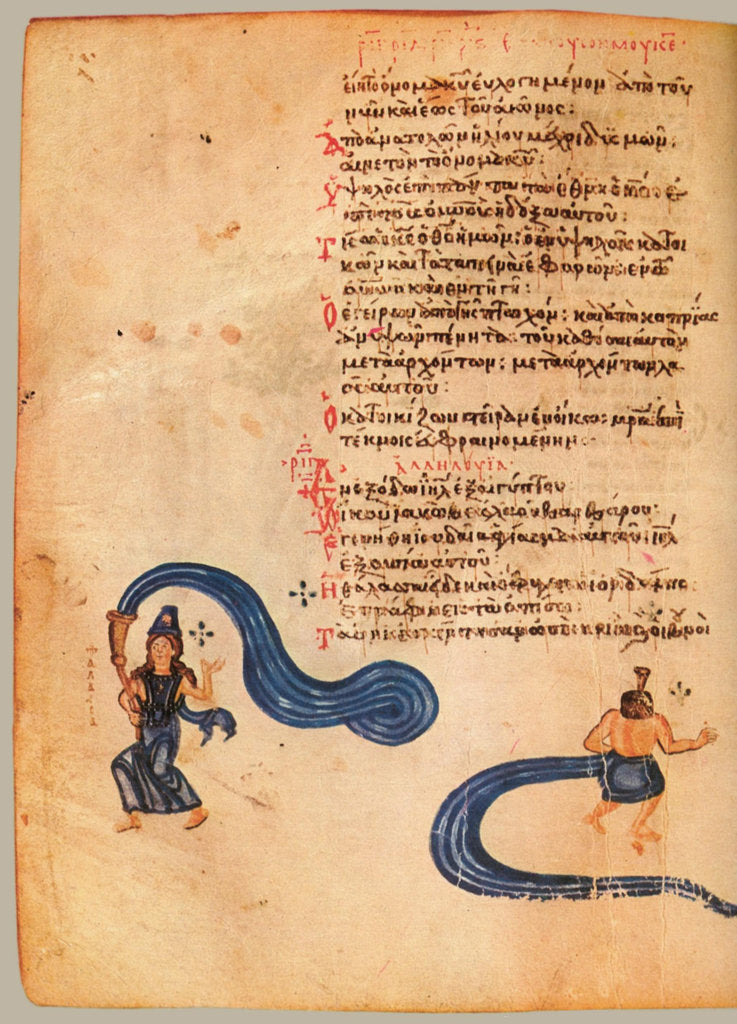 εἴη τὸ ὄνομα κυ εὐλογημένον ἀπὸ τοῦ
νῦν καὶ ἕως τοῦ αἰῶνος:
Ἀπὸ ἀνατολῶν ἡλίου μέχρι δυσμῶν:
αἰνετὸν τὸ ὄνομα κυ:
Ὑψηλὸς ἐπὶ πάντα τὰ ἔθνη ὁ κς ἐ
οὐνοὺς ἡ δόξα αὐτοῦ:
Τίς ὡς κς ὁ θς ἡμῶν: ὁ ἐν ὑψηλοῖς κατοι
κῶν καὶ τὰ ταπεινὰ ἐφορῶν: ἐν τῷ
οὐνῷ καὶ ἐν τῇ γῇ:
Ὁ ἐγείρων ἀπὸ γῆς πτωχόν: καὶ ἀπὸ κοπρίας
ἀνυψῶν πένητα: τοῦ καθίσαι αὐτὸν
μετὰ ἀρχόντων: μετὰ ἀρχόντων λα
οῦ αὐτοῦ:
Ὁ κατοικίζων στεῖραν ἐν οἴκῳ: μρα ἐπὶ
τέκνοις εὐφραινομένην:
ριγ ἀλληλούϊα
Ἐν ἐξόδῳ ιηλ ἐξ αἰγύπτου
οἴκου ἰακὼβ ἐκ λαοῦ βαρβάρου:
Ἐγενήθη ἰουδαία ἁγίασμα αὐτοῦ ιηλ
ἐξουσία αὐτοῦ:
Ἡ θάλασσα εἶδεν καὶ ἔφυγεν ὁ ἰορδάνης
ἐστράφη εἰς τὰ ὀπίσω:
Τὰ ὄρη ἐσκίρτησαν ὡσεὶ κριοὶ βουνοὶ